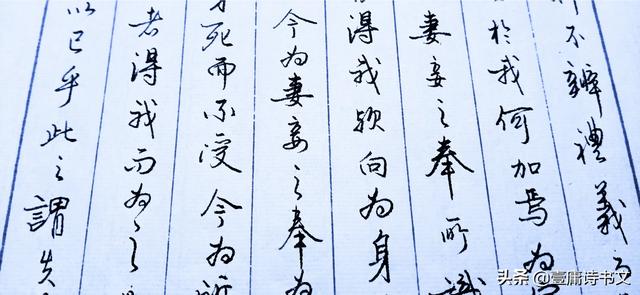 不辨禮義
於我何加焉为
妻妾之奉所識
得我欤向为身
今为妻妾之奉为
死而不受今为所
者得我而为之
以已乎此之謂失
头条 @壹庸诗书文